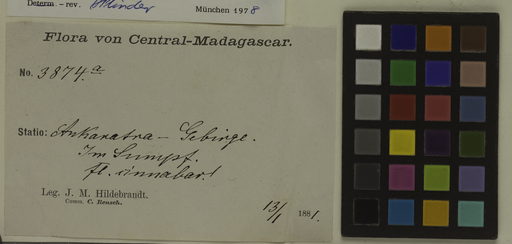 Determ. – rev. München 1978
Flora von Central-Madagascar.
No. 3874.a
Statio: Ankaratra – Gebirge.
Im Sumpf.
fl. cinnabar!
Leg. J. M. Hildebrandt.
Comm. C. Rensch.
13/1 1881.